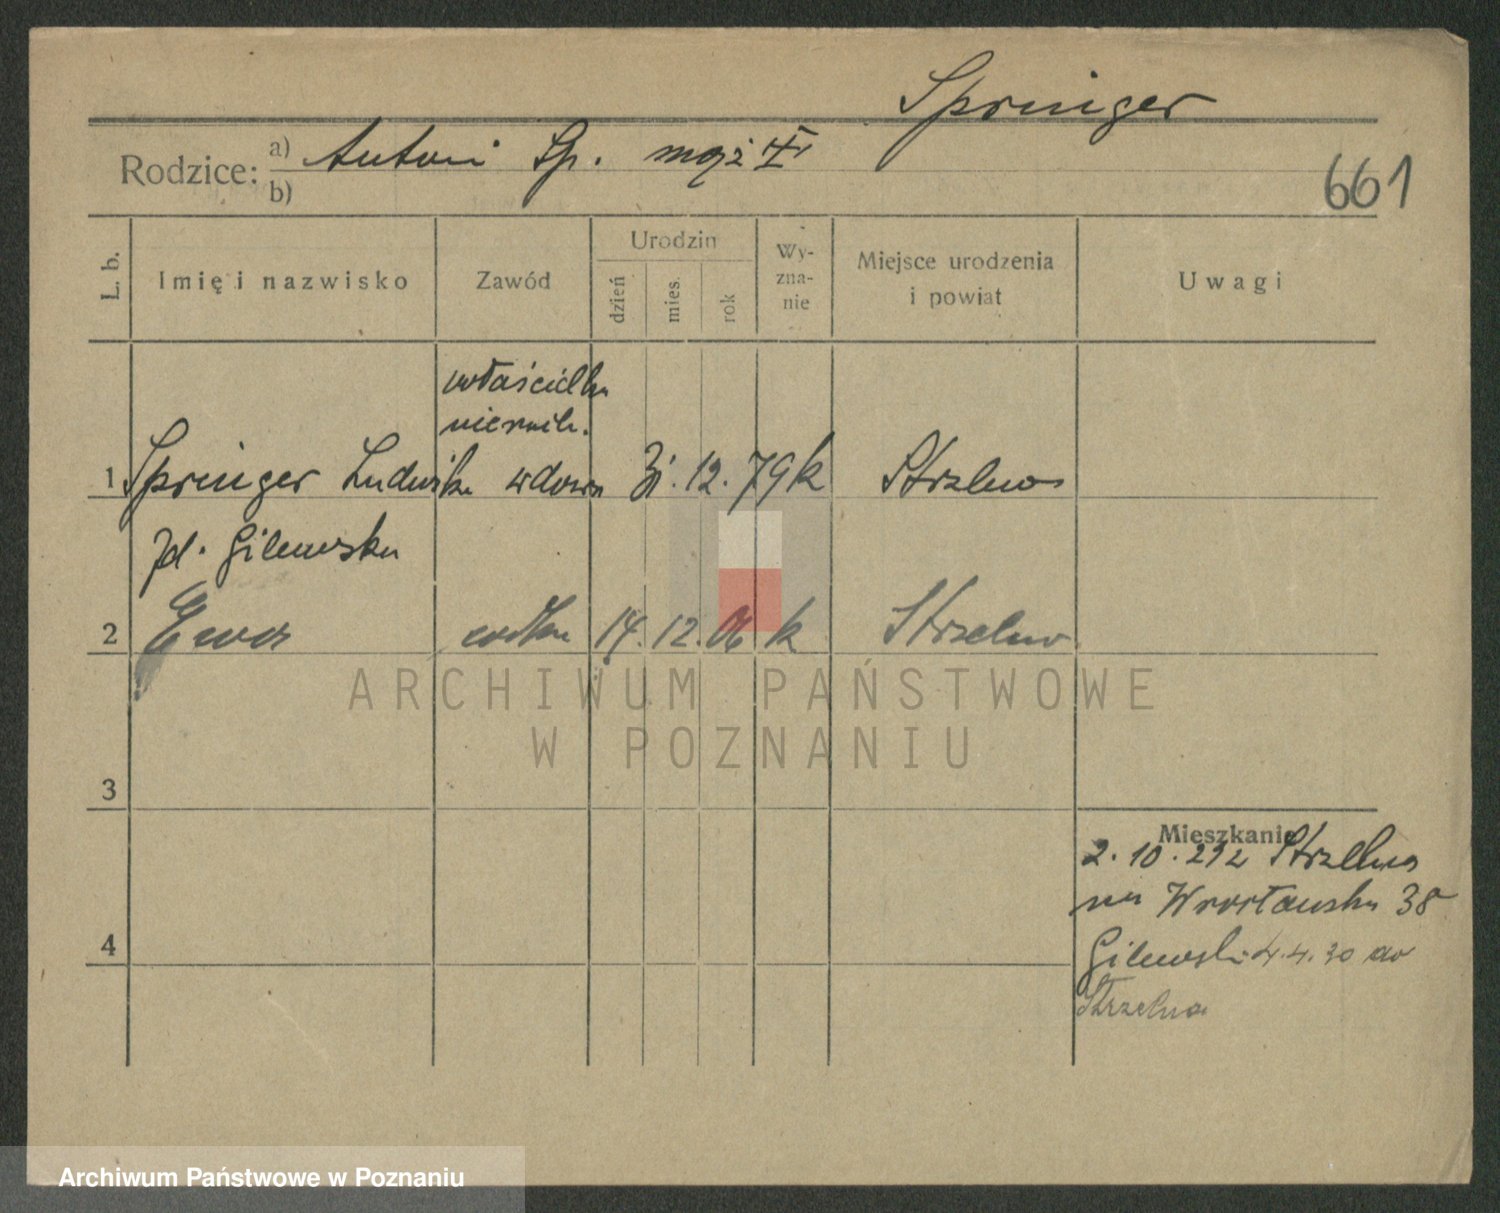 Springer
Rodzice: a) Antoni Sp. mąż I
b)
661
L. b. Imię i nazwisko Zawód Urodzin dzień mies. rok Wyznanie Miejsce urodzenia i powiat Uwagi
właścicielka
nieruch.
1 Springer Ludwika wdowa 31. 12. 79 k Strzelno
zd. Gilewska
2 Ewa córka 14. 12. 06 k Strzelno
3
4
Mieszkanie
2. 10. 29 z Strzelna
na Wrocławska 38
Gilewski 4. 4. 30 do
Strzelna
ARCHIWUM PAŃSTWOWE
W POZNANIU
Archiwum Państwowe w Poznaniu